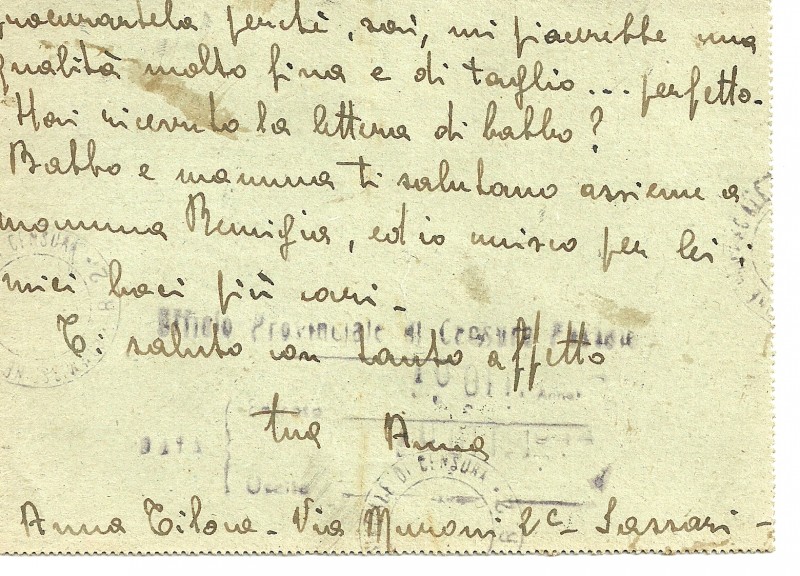 procurartela perchè, sai, mi piacerebbe una
qualità molto fina e di taglio... perfetto-
Hai ricevuto la lettera di babbo?
Babbo e mamma ti salutano assieme a
mamma Remigia, ed io unisco per lei i
miei baci più cari-
Ufficio Provinciale di Censura
Ti saluto con tanto affetto
tua Anna
Anna Tilora - Via Muroni 2c - Sassari -
DI CENSURA
CENSURA